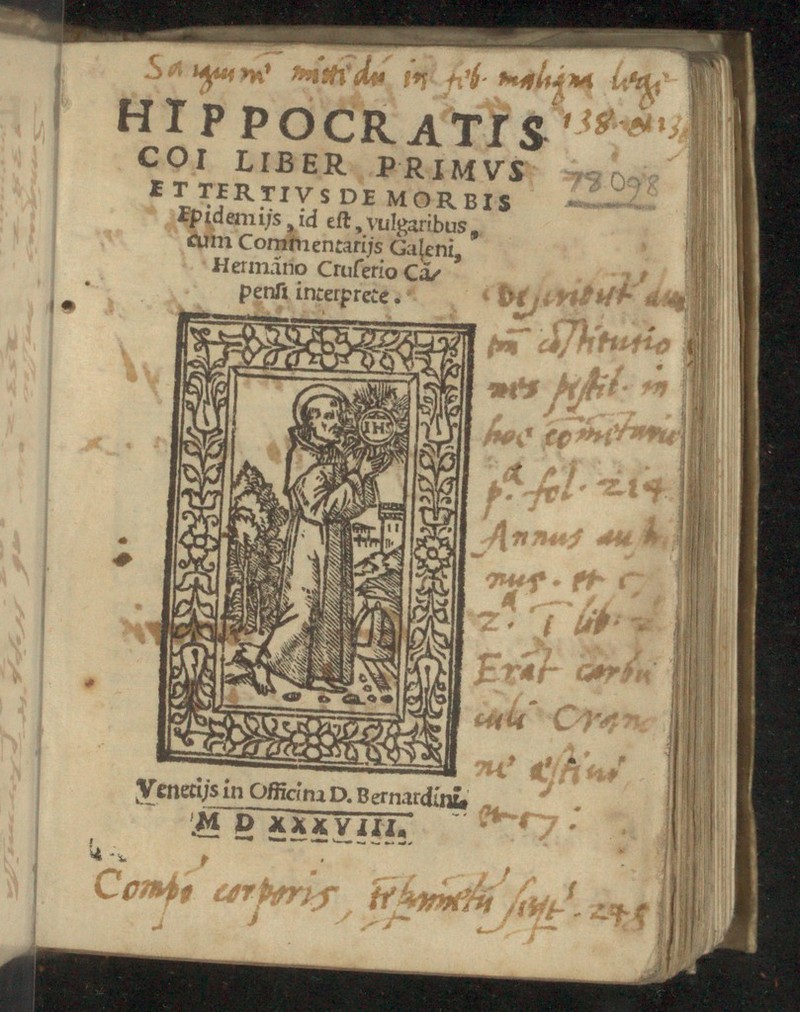 Sanguinē mittēdū in feb. maligna lege
138. et 13
HIPPOCRATIS
COI LIBER PRIMVS
ET TERTIVS DE MORBIS
78098
Epidemijs, id est, vulgaribus,
cum Commentarijs Galeni,
Hermãno Cruserio Cã/
pensi interprete.
IHS
Describūt
constitutio
nes pestil. in
hoc cōmētario
p.ª fol. 214
Annus aust
nus. et c
2.ª ī lib.
Erāt carbū
culi Crano
ne æstiui
et c :
Venetijs in Officina D. Bernardini.
M D XXXVIII.
Compō corporis, tēpamētū 248